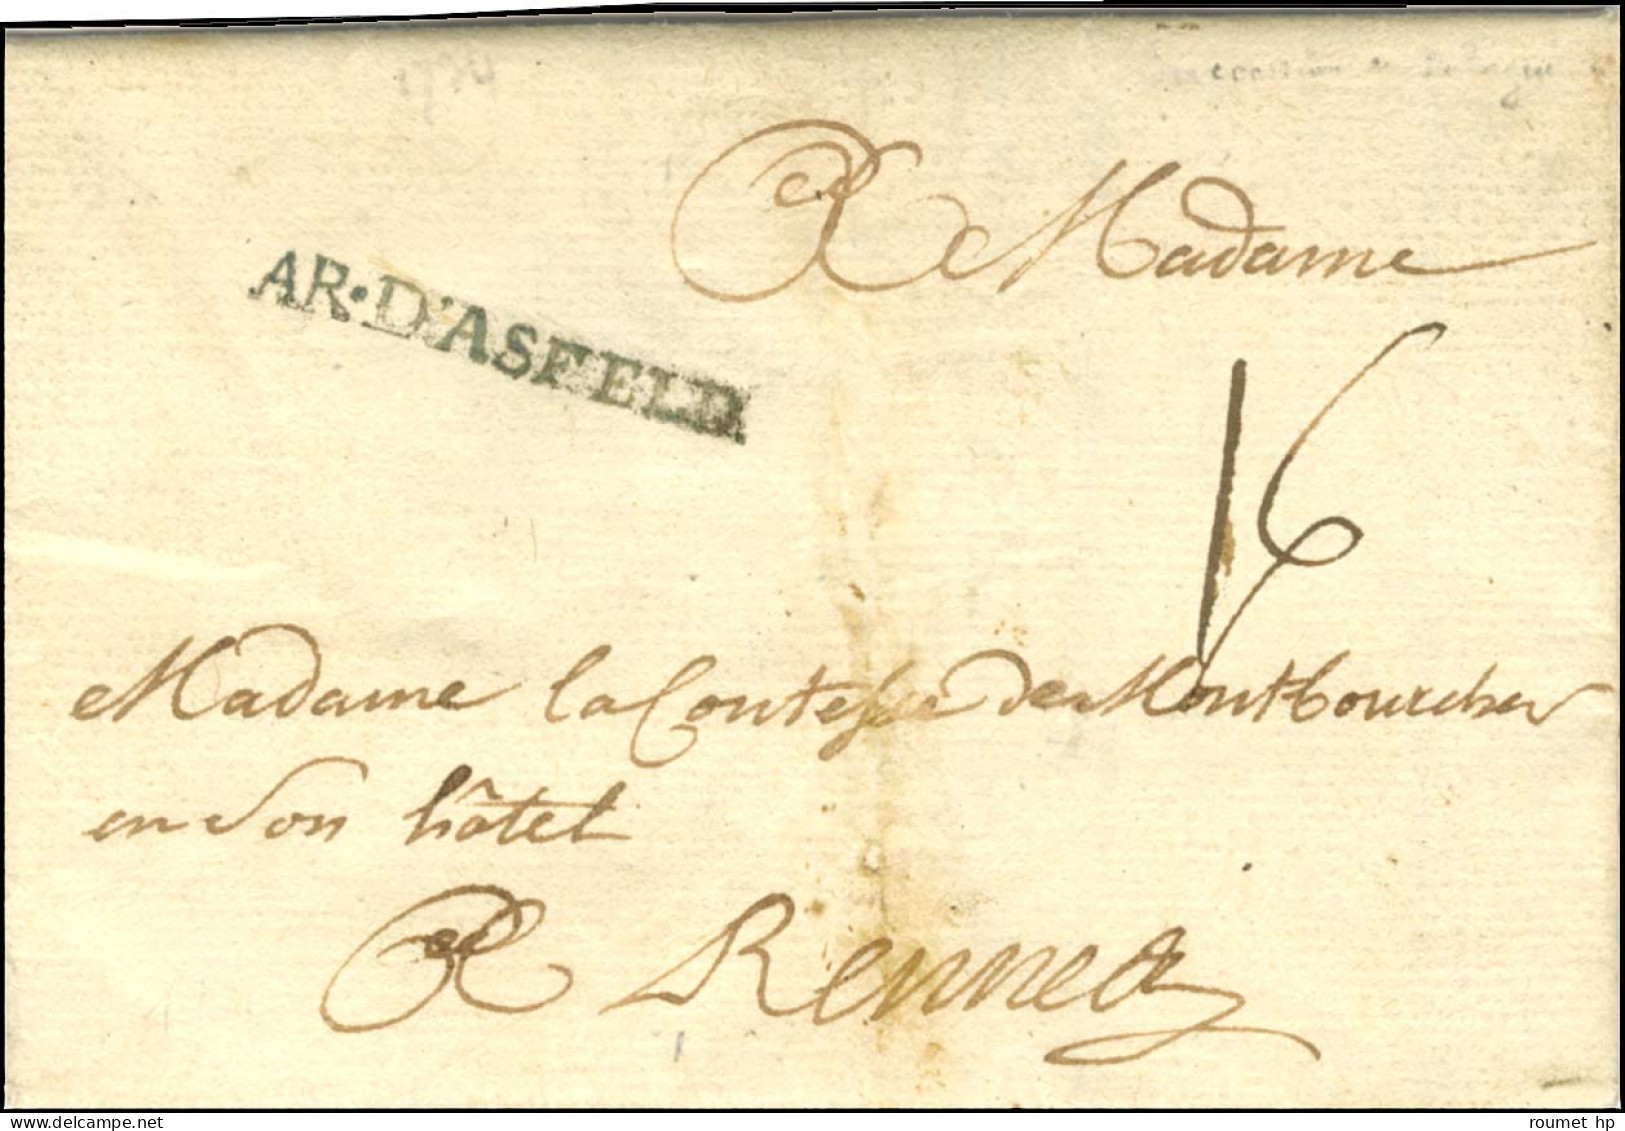 A Madame
AR·D'ASFELD
16
Madame la Contesse de Montbourcher
en son hôtel
A Rennes
www.delcampe.net
roumet hp